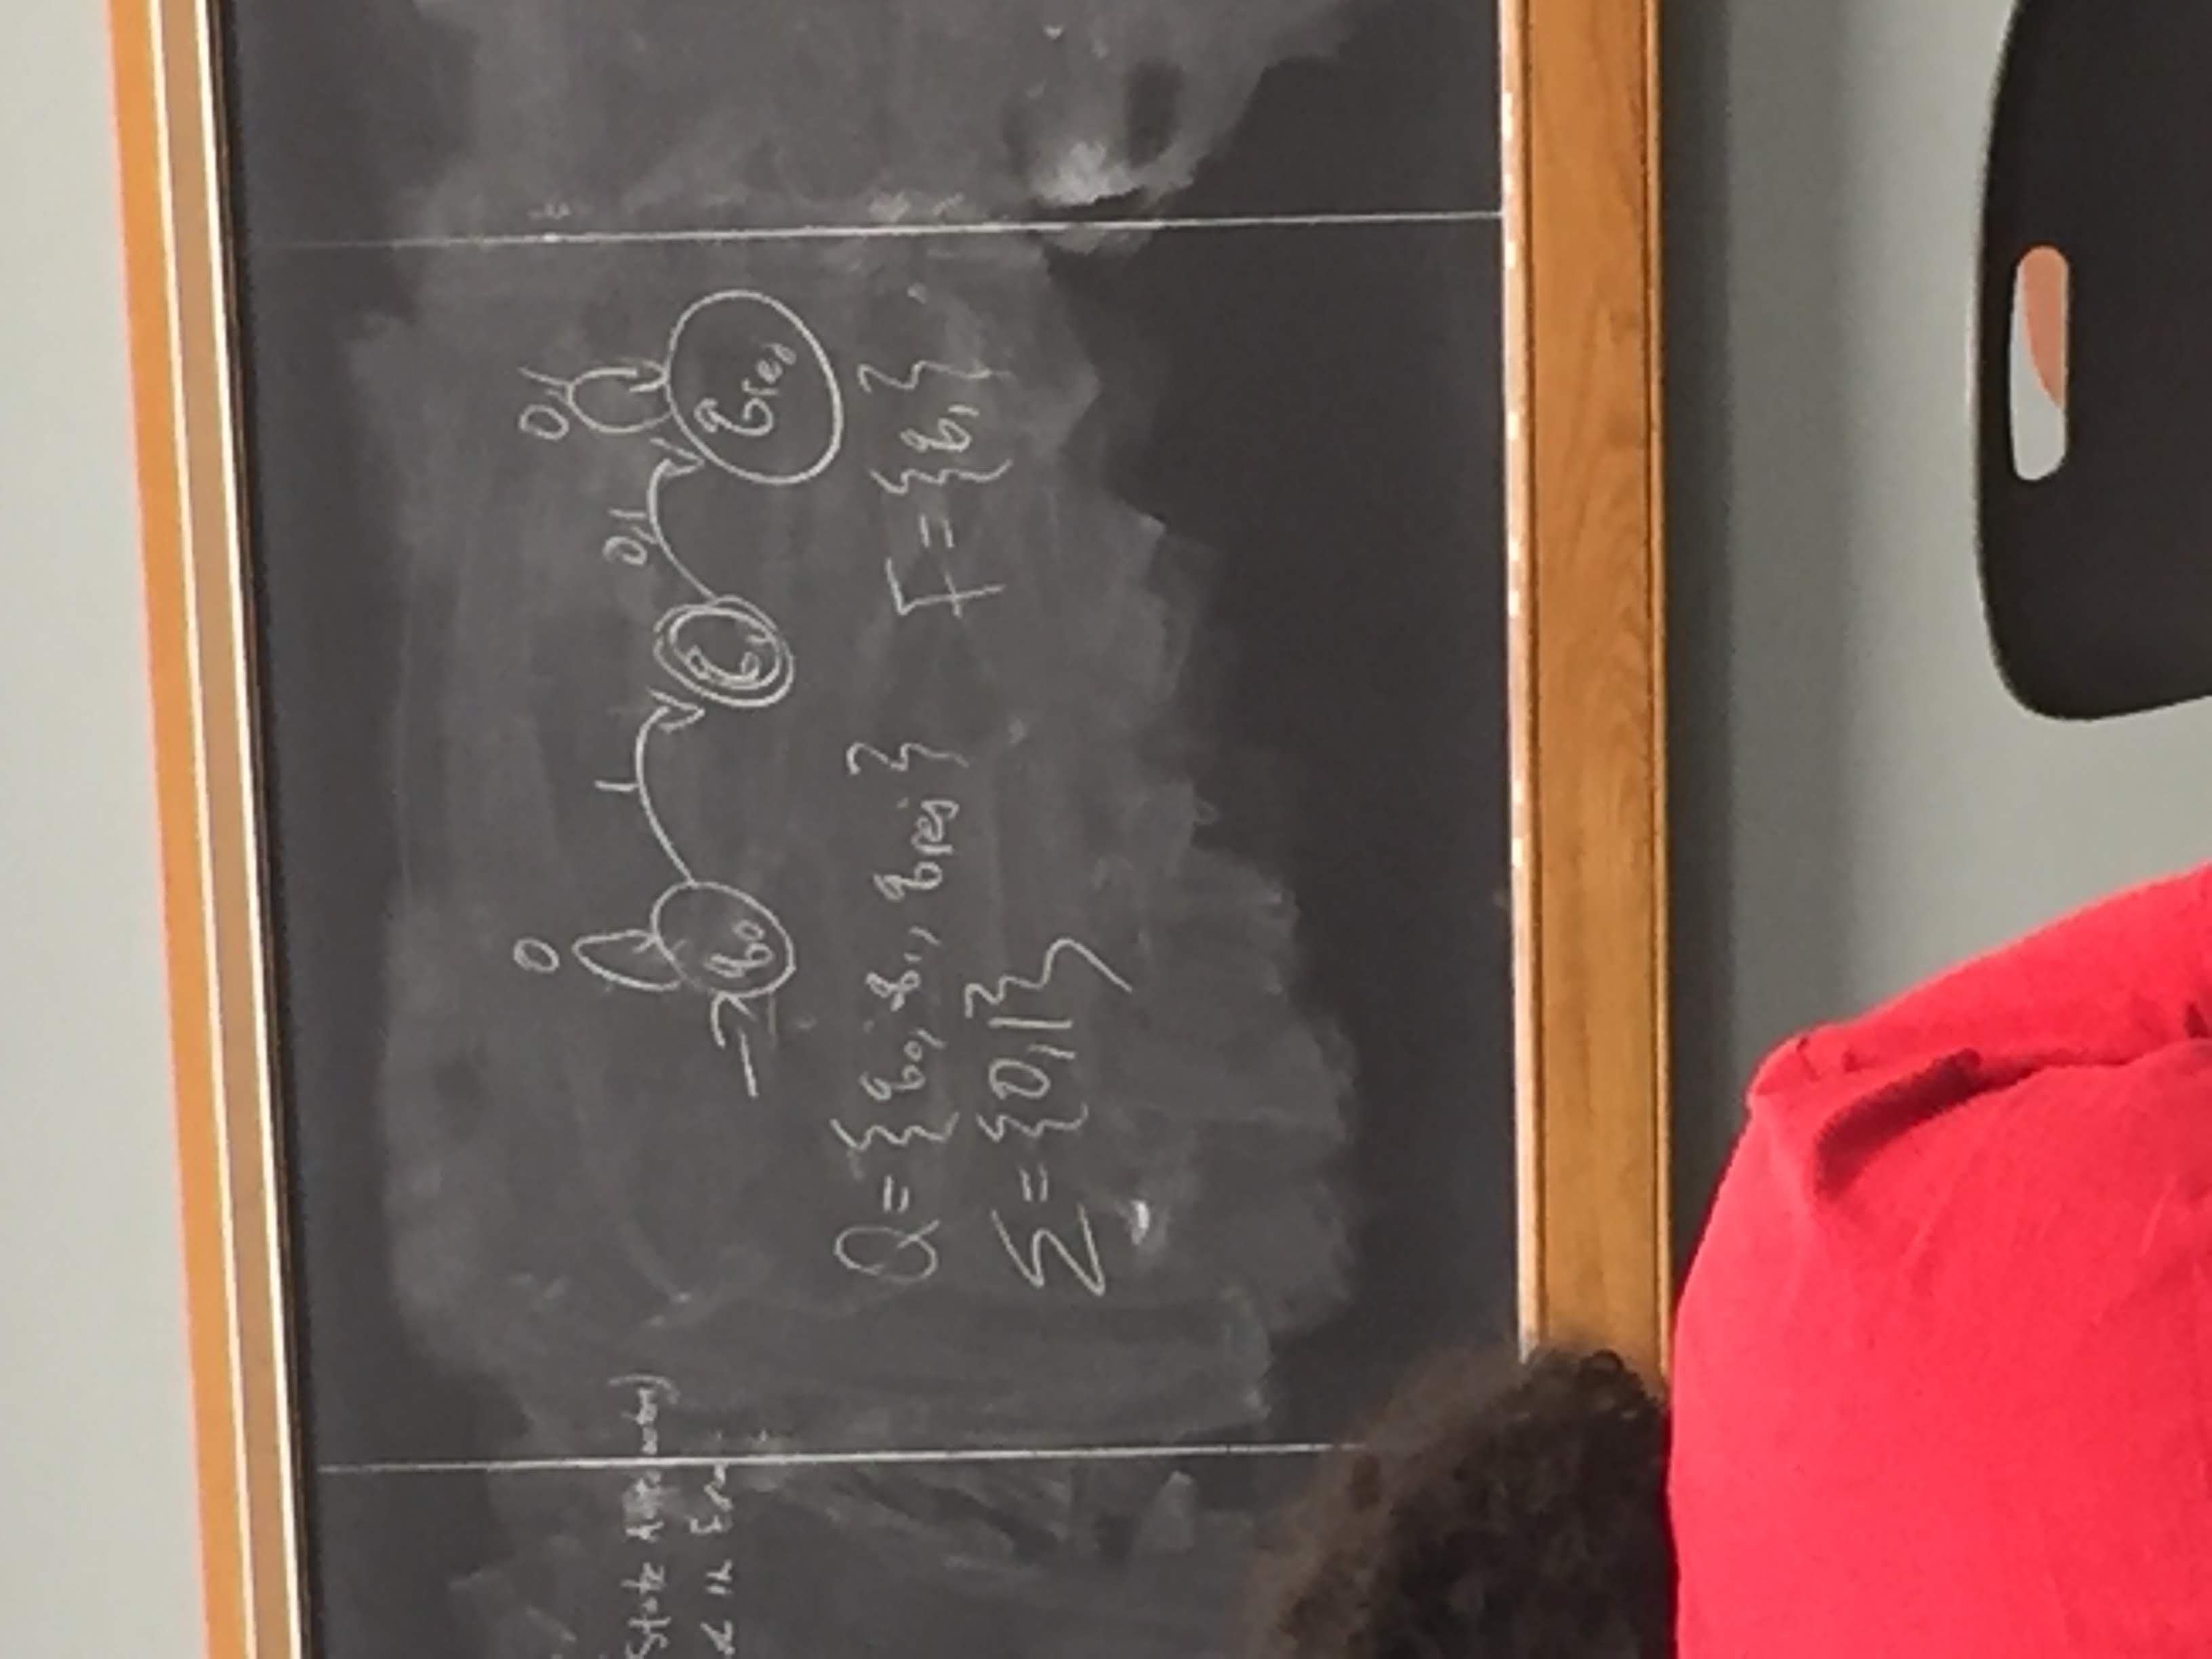 State Automaton)
in
0
0,1
1
0,1
q₀
q₁
qrej
Q = {q₀, q₁, qrej}
F = {q₁}
Σ = {0,1}